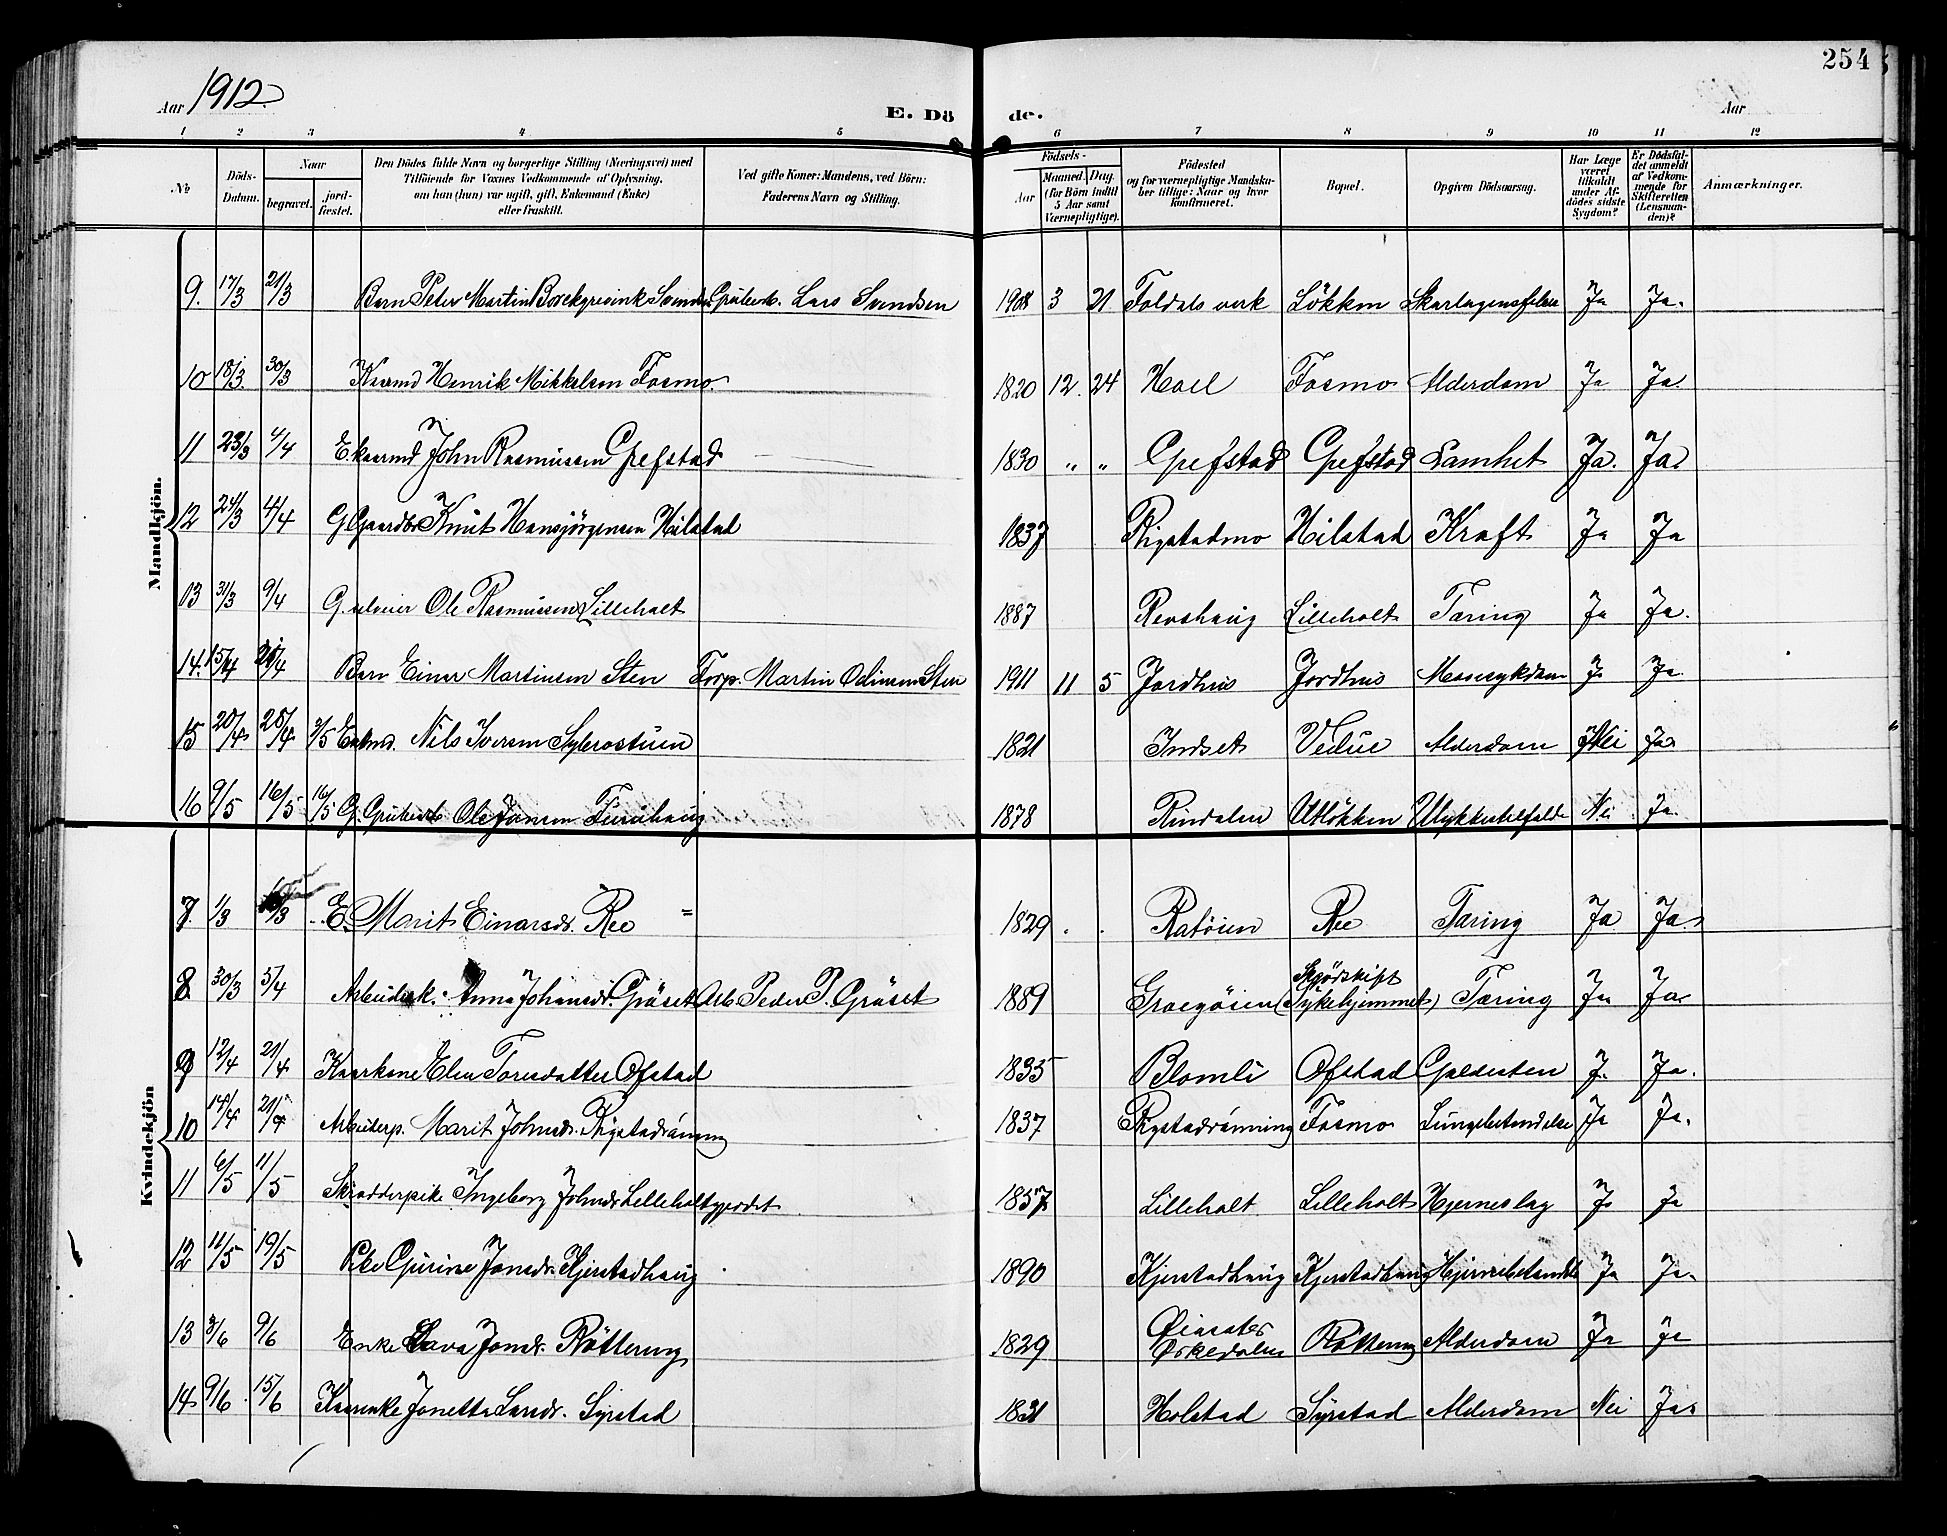 254
Aar 1912.
E. Dö de.
Aar
1 2 3 4 5 6 7 8 9 10 11 12
No
Döds-Datum.
Naar
begravet.
jord-fæstet.
Den Dödes fulde Navn og borgerlige Stilling (Næringsvei) med
Tilföiende for Voxnes Vedkommende af Oplysning,
om hun (hun) var ugift, gift, Enkemand (Enke)
eller fraskilt.
Ved gifte Koner: Mandens, ved Börn:
Faderens Navn og Stilling.
Födsels-
Aar
Maaned. Dag.
(for Börn indtil
5 Aar samt
Værnepligtige).
Födested
og for værnepligtige Mandska-
ber tillige: Naar og hvor
konfirmeret.
Bopæl.
Opgiven Dödsaarsag.
Har Læge
været
tilkaldt
under Af-
dödes sidste
Sygdom?
Er Dödsfal-
det anmeldt
af Vedkom-
mende for
Skifteretten
(Lensman-
den)?
Anmærkninger.
Mandkjön.
9. 17/3 21/3 Barn Peter Martin Grubearb. Lars Svendsen 1908 3 21 Foldals verk Lökken Skarlagensfeber Ja Ja.
10 18/3 30/3 Kaarmd Henrik Mikkelsen Fosmo 1820 12. 24 Hoel Fosmo Alderdom Ja Ja
11 23/3 4/4 E. kaarmd John Rasmussen Grefstad 1830 " " Grefstad Grefstad Lamhet Ja. Ja
12 24/3 4/4 G. Gaardbr. Knut Hansjörgensen Hilstad 1837 Rigstadmo Hilstad Kræft Ja Ja
13 31/3 9/4 G. selveier Ole Rasmussen Lilleholt 1887 Revshaug Lilleholt Tæring Ja Ja.
14. 15/4 21/4 Barn Einar Martinsen Sten Forp. Martin Odinsen Sten 1911 11 5 Jordhus Jordhus Ja Ja
15 20/4 25/4 3/5 Enkmd. Nils Iversen 1821 Indset Alderdom Nei Ja
16 9/5 16/5 16/5 G. Grubearb. Ole Jonsen Furuhaug 1878 Rindalen Utlökken Ulykkestilfælde Nei Ja.
Kvindekjön
7. 1/3 E. Marit Einarsdr. Ree 1829 Ratöien Ree Tæring Ja Ja
8. 30/3 5/4 Arbeidersk. Anna Johansdr. Gröset Arb. Peder P. Gröset 1889 (Sykehjemmet) Tæring Ja Ja
9 12/4 21/4 Kaarkone Elen Toresdatter Ofstad 1835 Blomli Ofstad Galdesten Ja Ja.
10 14/4 21/4 Arbeiderp. Marit Johnsdr. Rigstadrönning 1837 Rigstadrönning Fosmo Lungebetændelse Ja Ja.
11 6/5 11/5 Skrædderpike Ingeborg Johnsdr. Lilleholtgjerdet 1857 Lilleholt Lilleholt Hjerneslag Ja Ja
12 11/5 19/5 Pike Gurine Jonsdr. Kjerstadhaug 1890 Kjerstadhaug Kjerstadhaug Hjernebetændelse Ja Ja.
13 3/6 9/6 Enke Jonsdr. Röttereng 1829 Orkedalen Röttereng Alderdom Ja Ja
14 9/6 15/6 Kaarenke Jonetta Larsdr. Syrstad 1831 Holstad Syrstad Alderdom Nei Ja